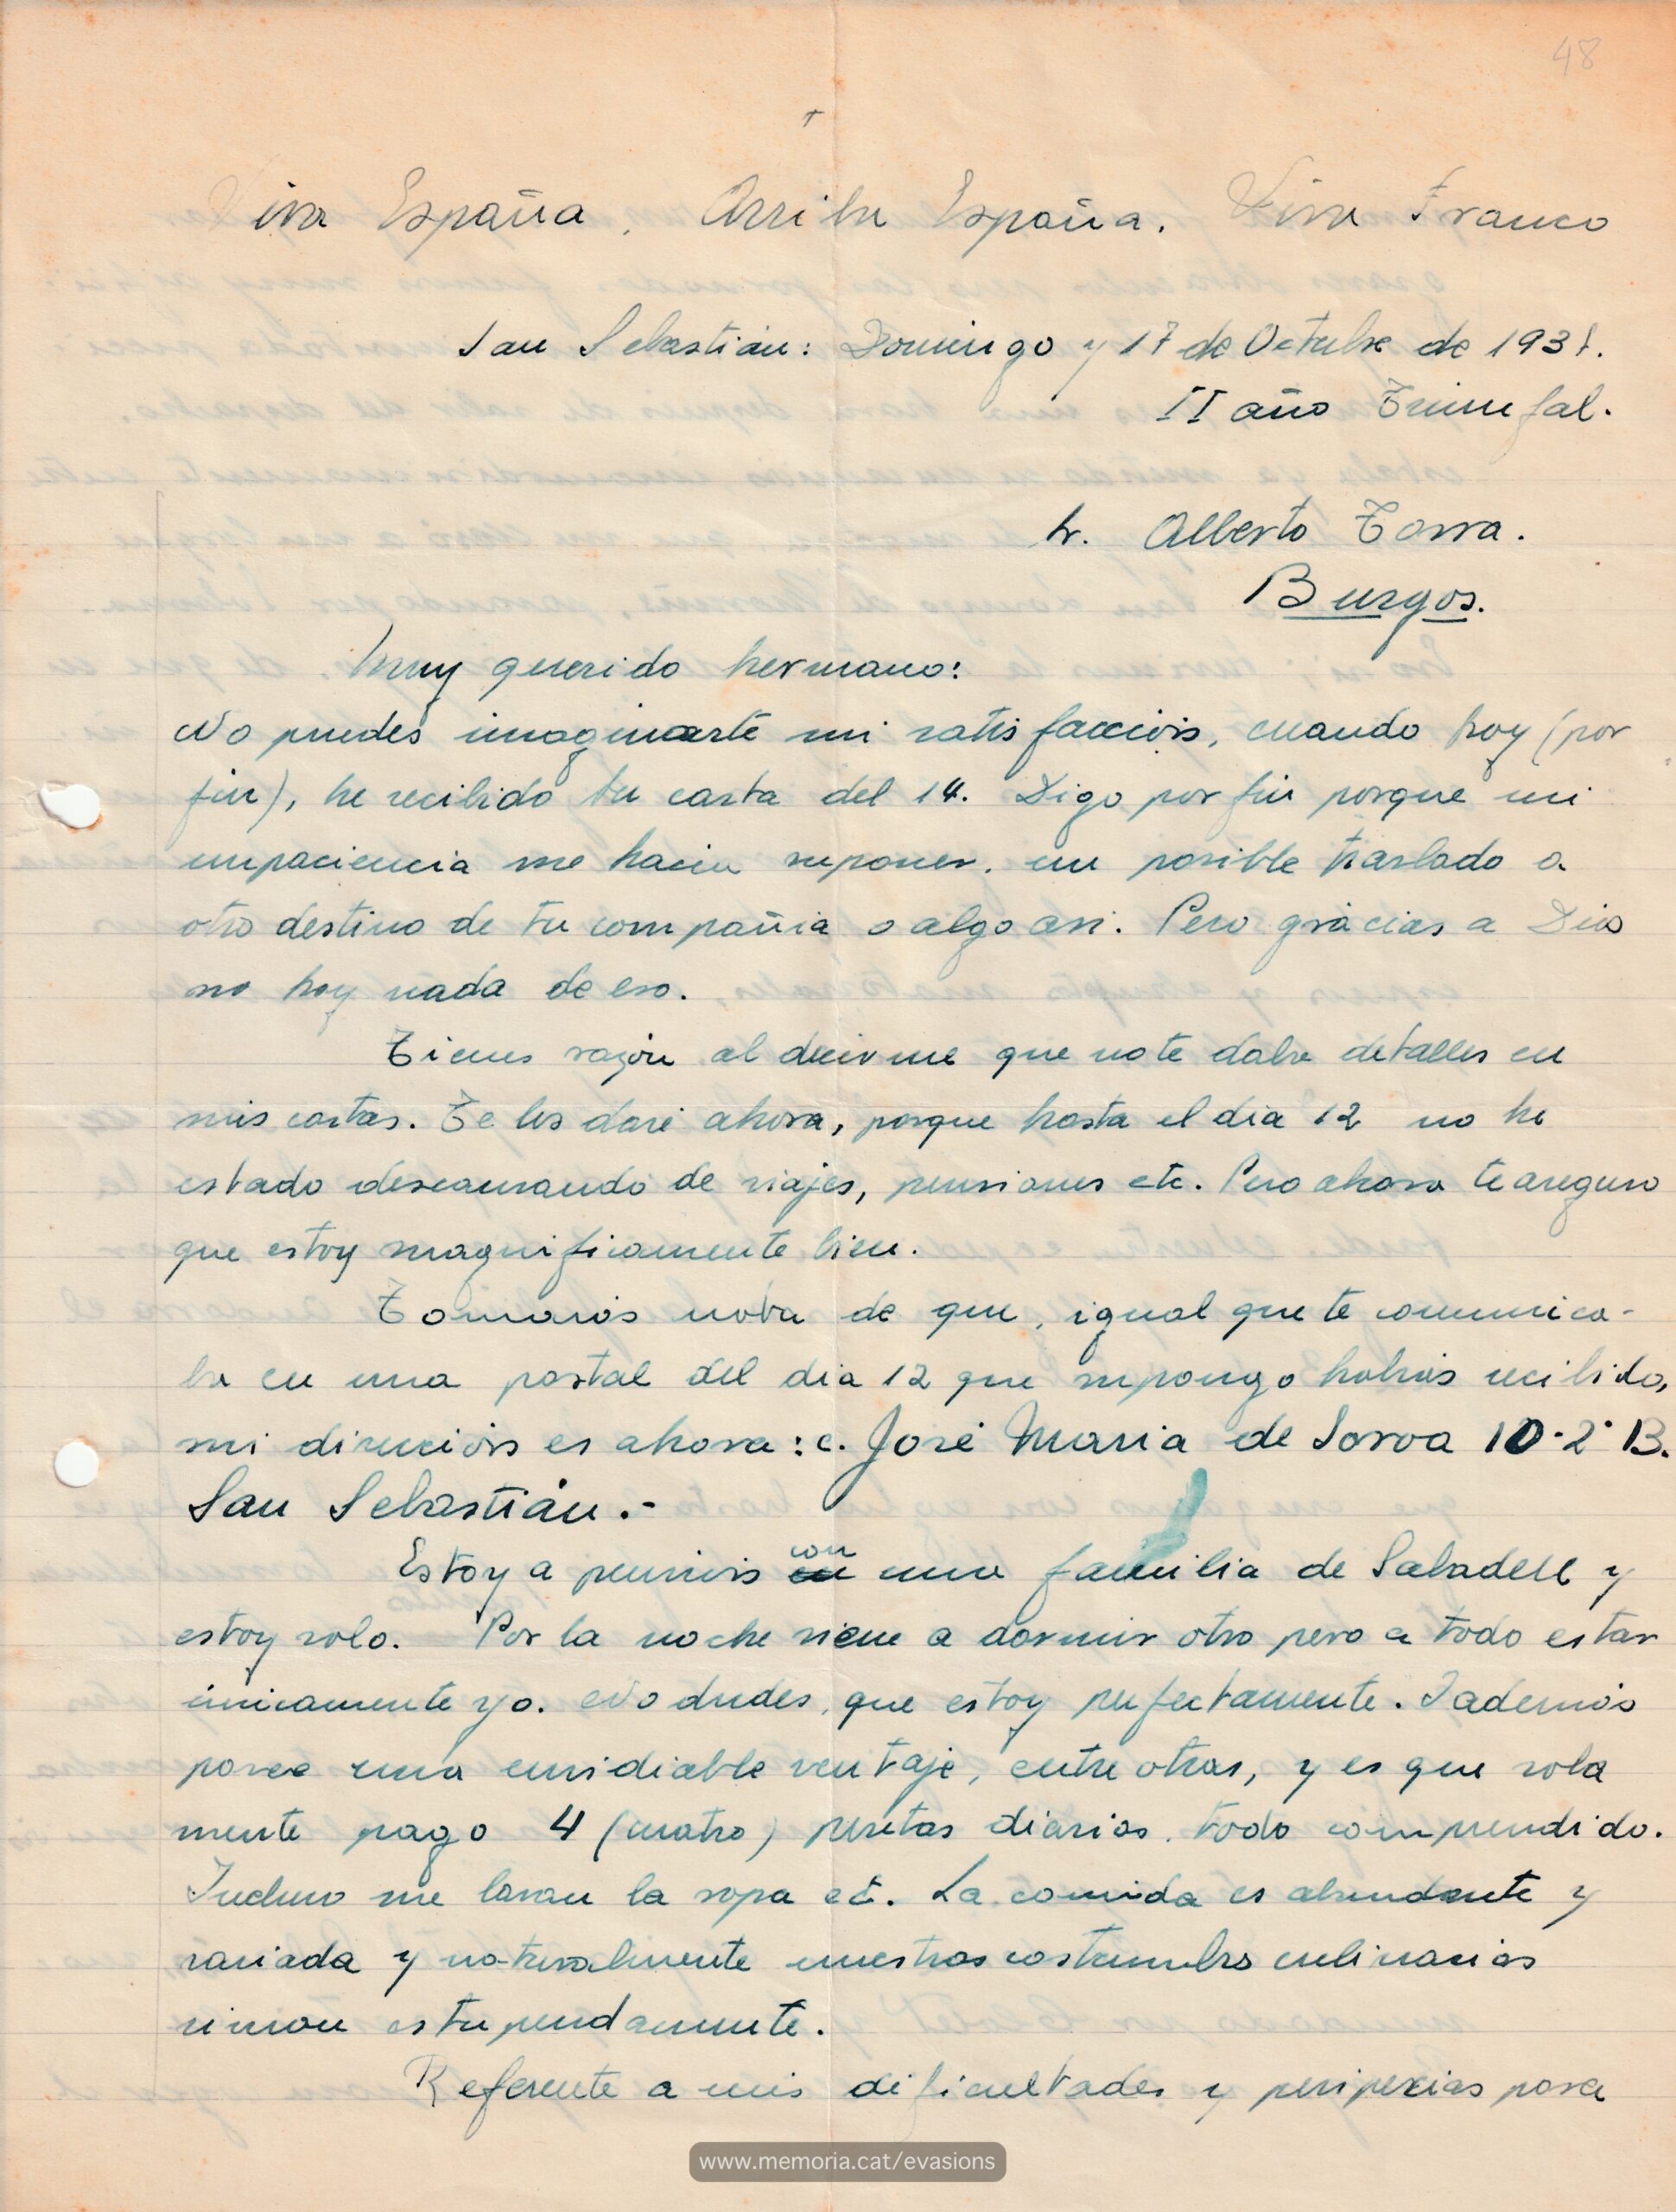 48
†
Viva España. Arriba España. Viva Franco
San Sebastián: Domingo y 17 de Octubre de 1937.
II año Triunfal.
Sr. Alberto Torra.
Burgos.
Muy querido hermano:
No puedes imaginarte mi satisfacción, cuando hoy (por
fin), he recibido tu carta del 14. Digo por fin porque mi
impaciencia me hacia suponer, un posible traslado a
otro destino de tu compañia o algo asi. Pero gràcias a Dios
no hay nada de eso.
Tienes razón al decirme que no te daba detalles en
mis cartas. Te los daré ahora, porque hasta el dia 12 no he
estado descansando de viajes, pensiones etc. Pero ahora te aseguro
que estoy magnificamente bien.
Tomarás nota de que, igual que te comunica-
ba en una postal del dia 12 que supongo habrás recibido,
mi dirección es ahora: c. José Maria de Soroa 10-2º B.
San Sebastián.-
Estoy a pensión con una familia de Sabadell y
estoy solo. Por la noche viene a dormir otro pero a todo estar
únicamente yo. No dudes, que estoy perfectamente. I además
posee una envidiable ventaje, entre otras, y es que sola
mente pago 4 (cuatro) pesetas diarias. todo comprendido.
Incluso me lavan la ropa et. La comida es abundante y
variada y naturalmente nuestras costumbres culinarias
riman estupendamente.
Referente a mis dificultades y peripecias para
www.memoria.cat/evasions